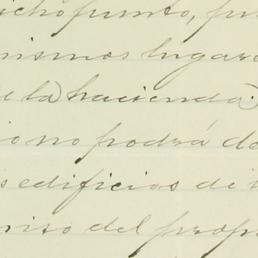 icho punto, pu
mismos lugare
e la hacienda.
io no podrá da
s edificios de
miso del prop